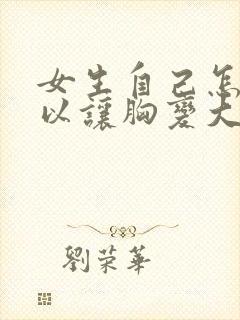 女生自己怎
以讓胸變大
劉荣華